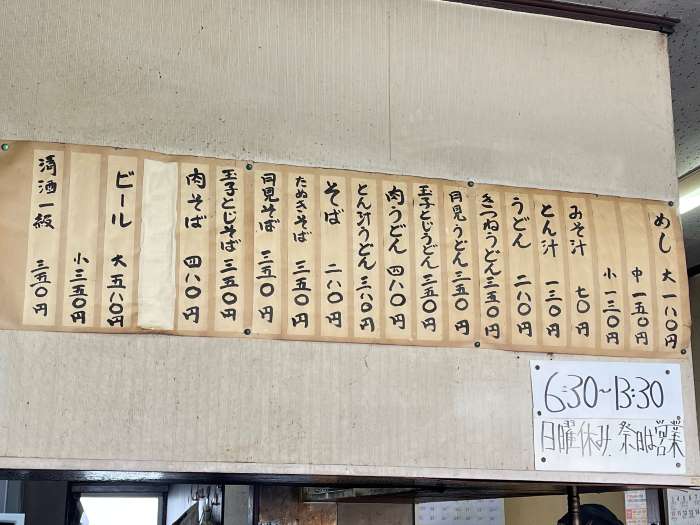 めし 大 一八〇円
中 一五〇円
小 一三〇円
みそ汁 七〇円
とん汁 一三〇円
うどん 二八〇円
きつねうどん 三五〇円
月見うどん 三五〇円
玉子とじうどん 三五〇円
肉うどん 四八〇円
とん汁うどん 三八〇円
そば 二八〇円
たぬきそば 三五〇円
月見そば 三五〇円
玉子とじそば 三五〇円
肉そば 四八〇円
ビール 大 五八〇円
小 三五〇円
清酒一級 三五〇円
6:30〜13:30
日曜休み 祭日は営業